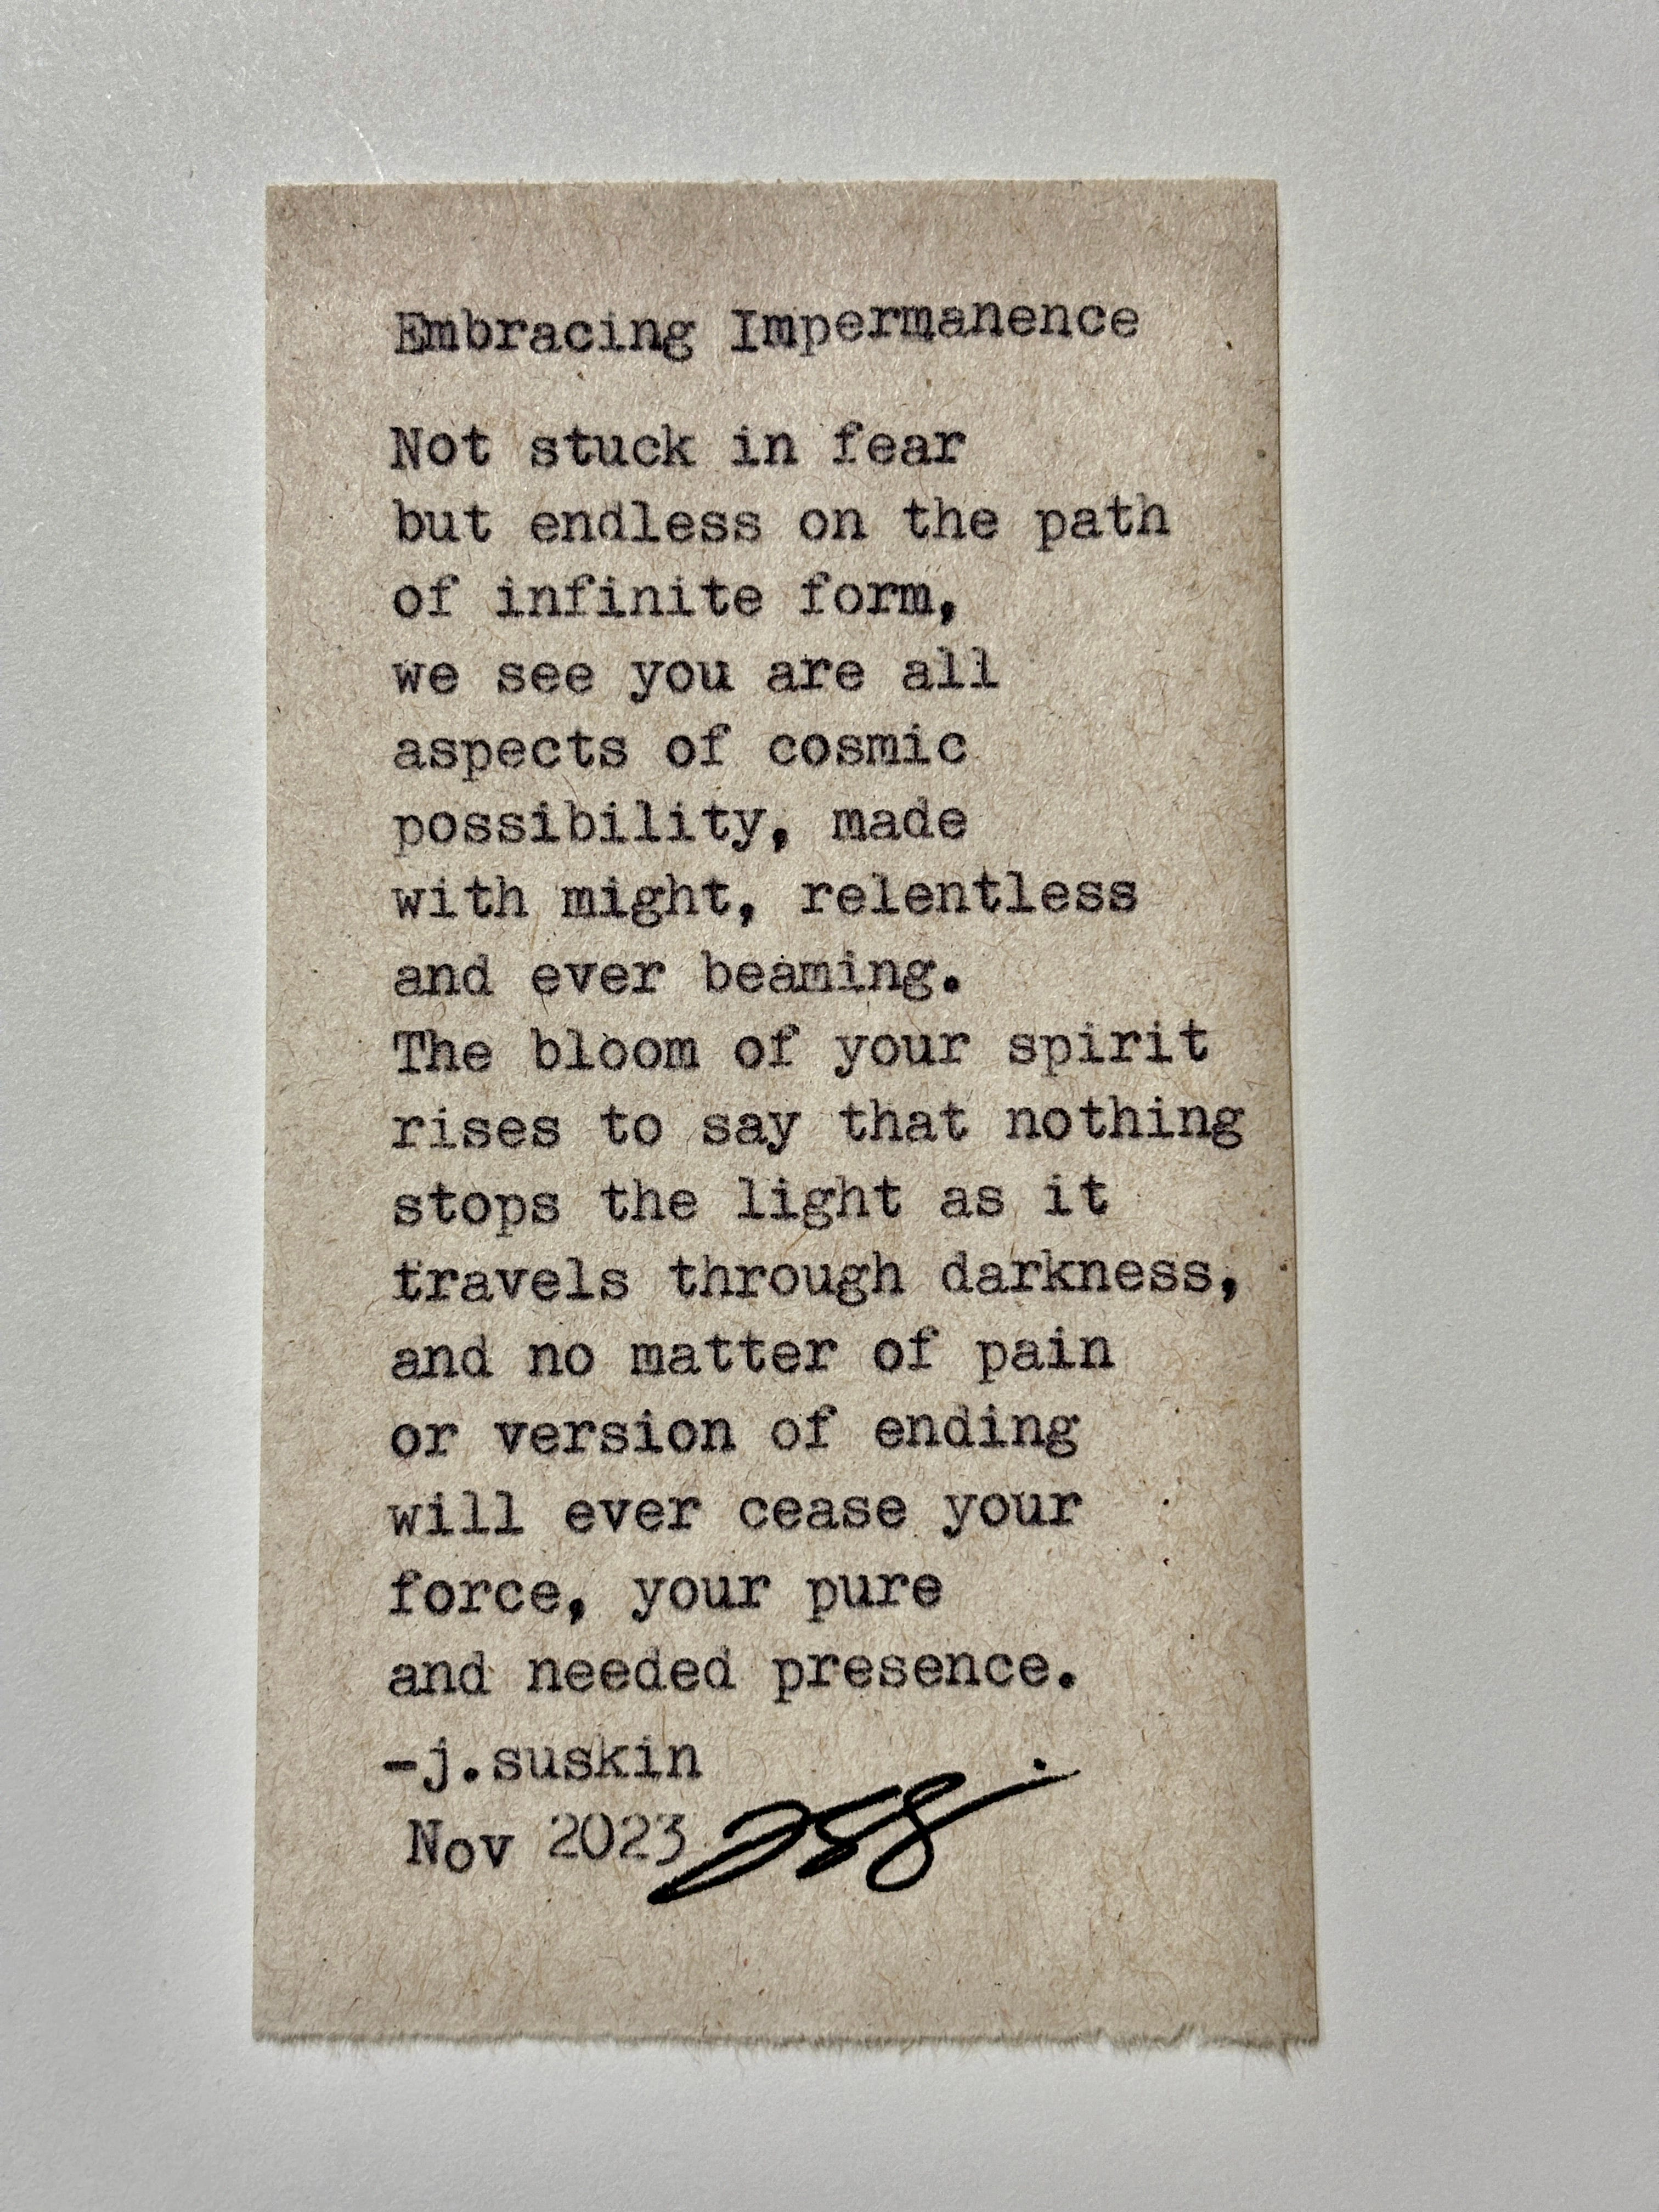 Embracing Impermanence
Not stuck in fear
but endless on the path
of infinite form,
we see you are all
aspects of cosmic
possibility, made
with might, relentless
and ever beaming.
The bloom of your spirit
rises to say that nothing
stops the light as it
travels through darkness,
and no matter of pain
or version of ending
will ever cease your
force, your pure
and needed presence.
-j.suskin
Nov 2023